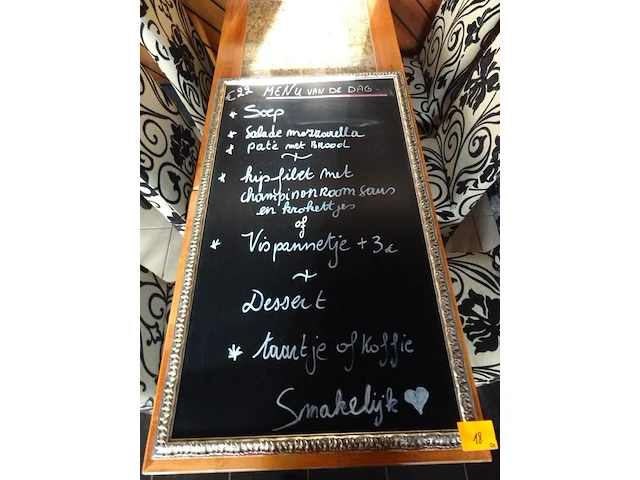 €22 MENU VAN DE DAG.
* Soep
* Salade mozzarella
* patè met Brood
* kipfilet met
champinonROOM saus
en krokettjes
of
* Vispannetje +3€
+
Dessert
* taartje of Koffie
Smakelijk
18